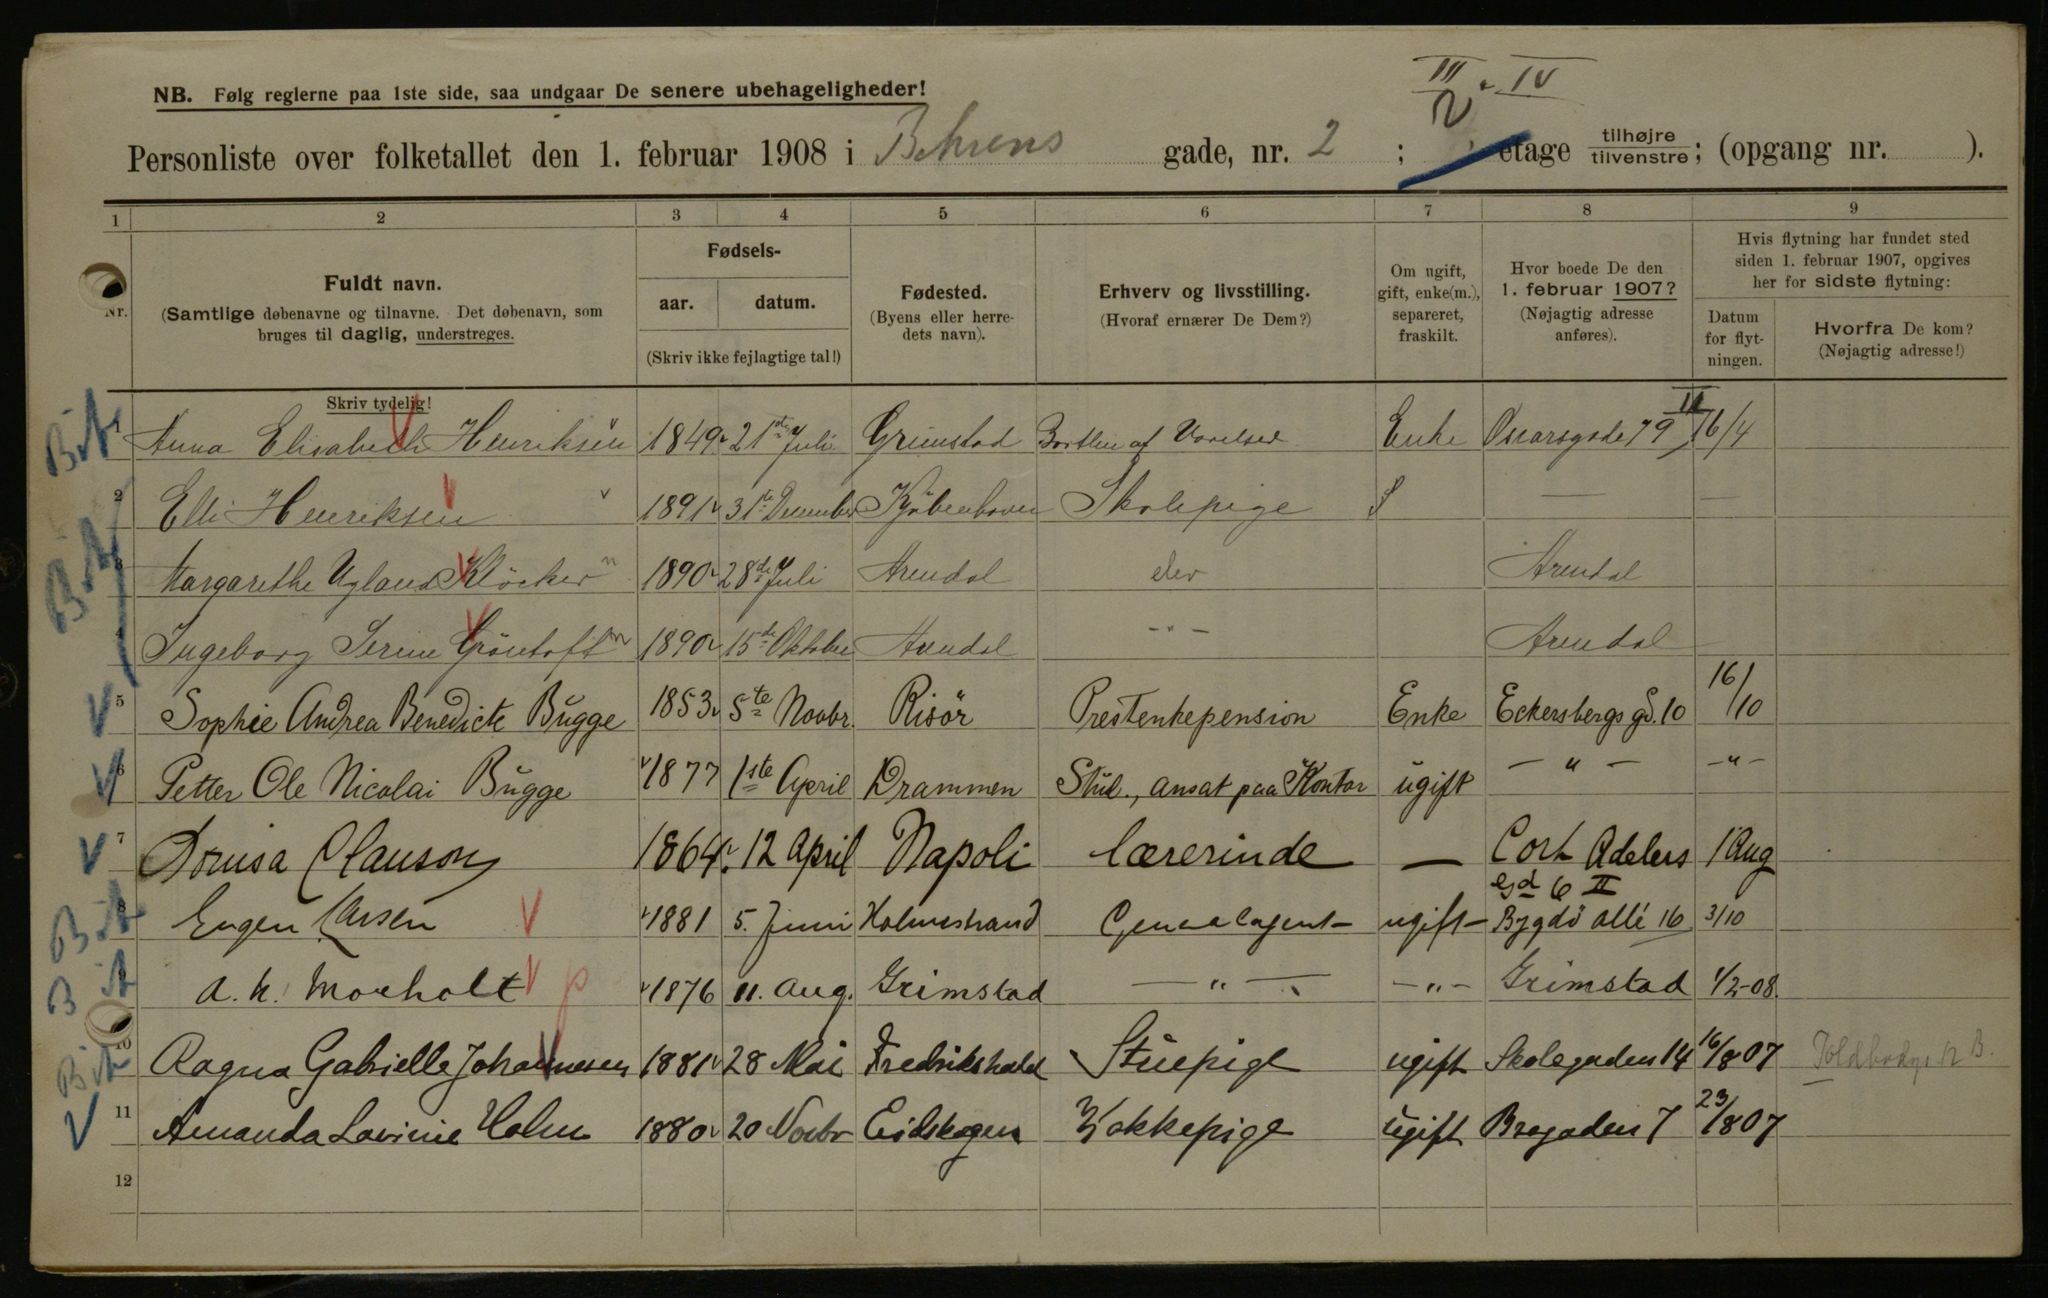 III
IV
NB. Følg reglerne paa 1ste side, saa undgaar De senere ubehageligheder!
Personliste over folketallet den 1. februar 1908 i Behrens gade, nr. 2 ; etage tilhøjre tilvenstre; (opgang nr. ).
1 2 3 4 5 6 7 8 9
Nr.
Fuldt navn.
(Samtlige døbenavne og tilnavne. Det døbenavn, som
bruges til daglig, understreges.
Skriv tydelig!
Fødsels-
aar. datum.
(Skriv ikke fejlagtige tal!)
Fødested.
(Byens eller herre-
dets navn).
Erhverv og livsstilling.
(Hvoraf ernærer De Dem?)
Om ugift,
gift, enke(m.),
separeret,
fraskilt.
Hvor boede De den
1. februar 1907?
(Nøjagtig adresse
anføres).
Hvis flytning har fundet sted
siden 1. februar 1907, opgives
her for sidste flytning:
Datum
for flyt-
ningen.
Hvorfra De kom?
(Nøjagtig adresse!)
Anna Elisabeth Henriksen 1849 21de Juli Grimstad af Enke Oscarsgade 79 II 16/4
2 Elli Henriksen " 1891 31te December Kjøbenhavn Skolepige — —
3 Margarethe Ugland Klöcker 1890 28de Juli Arendal elev Arendal
4 Ingeborg Serine Gröntoft 1890 15de Oktober Arendal - " - Arendal
5 Sophie Andrea Benedicte Bugge 1853 5te Novbr. Risör Prestenkepension Enke Eckersbergs gd. 10 16/10
6 Petter Ole Nicolai Bugge 1877 1ste April Drammen Stud., ansat paa Kontor ugift — " — - " -
7 Clauson 1864 12 April Napoli Lærerinde — Cort Adelers 1 Aug
gd 6 II
8 Eugen Larsen 1881 5. Juni Holmestrand ugift Bygdö allé 16 3/10
9 A. K. Morholt 1876 11. Aug. Grimstad — " — - " - Grimstad 1/2-08.
10 Ragna Gabrielle Johannesen 1881 28 Mai Fredrikshald Stuepige ugift Skolegaden 14 16/8 07
11 Amanda Lovinie Holm 1880 20 Novbr Eidskogen Kokkepige ugift Bregaden 7 23/8 07
12